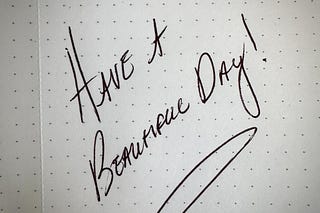 Have A
Beautiful Day!